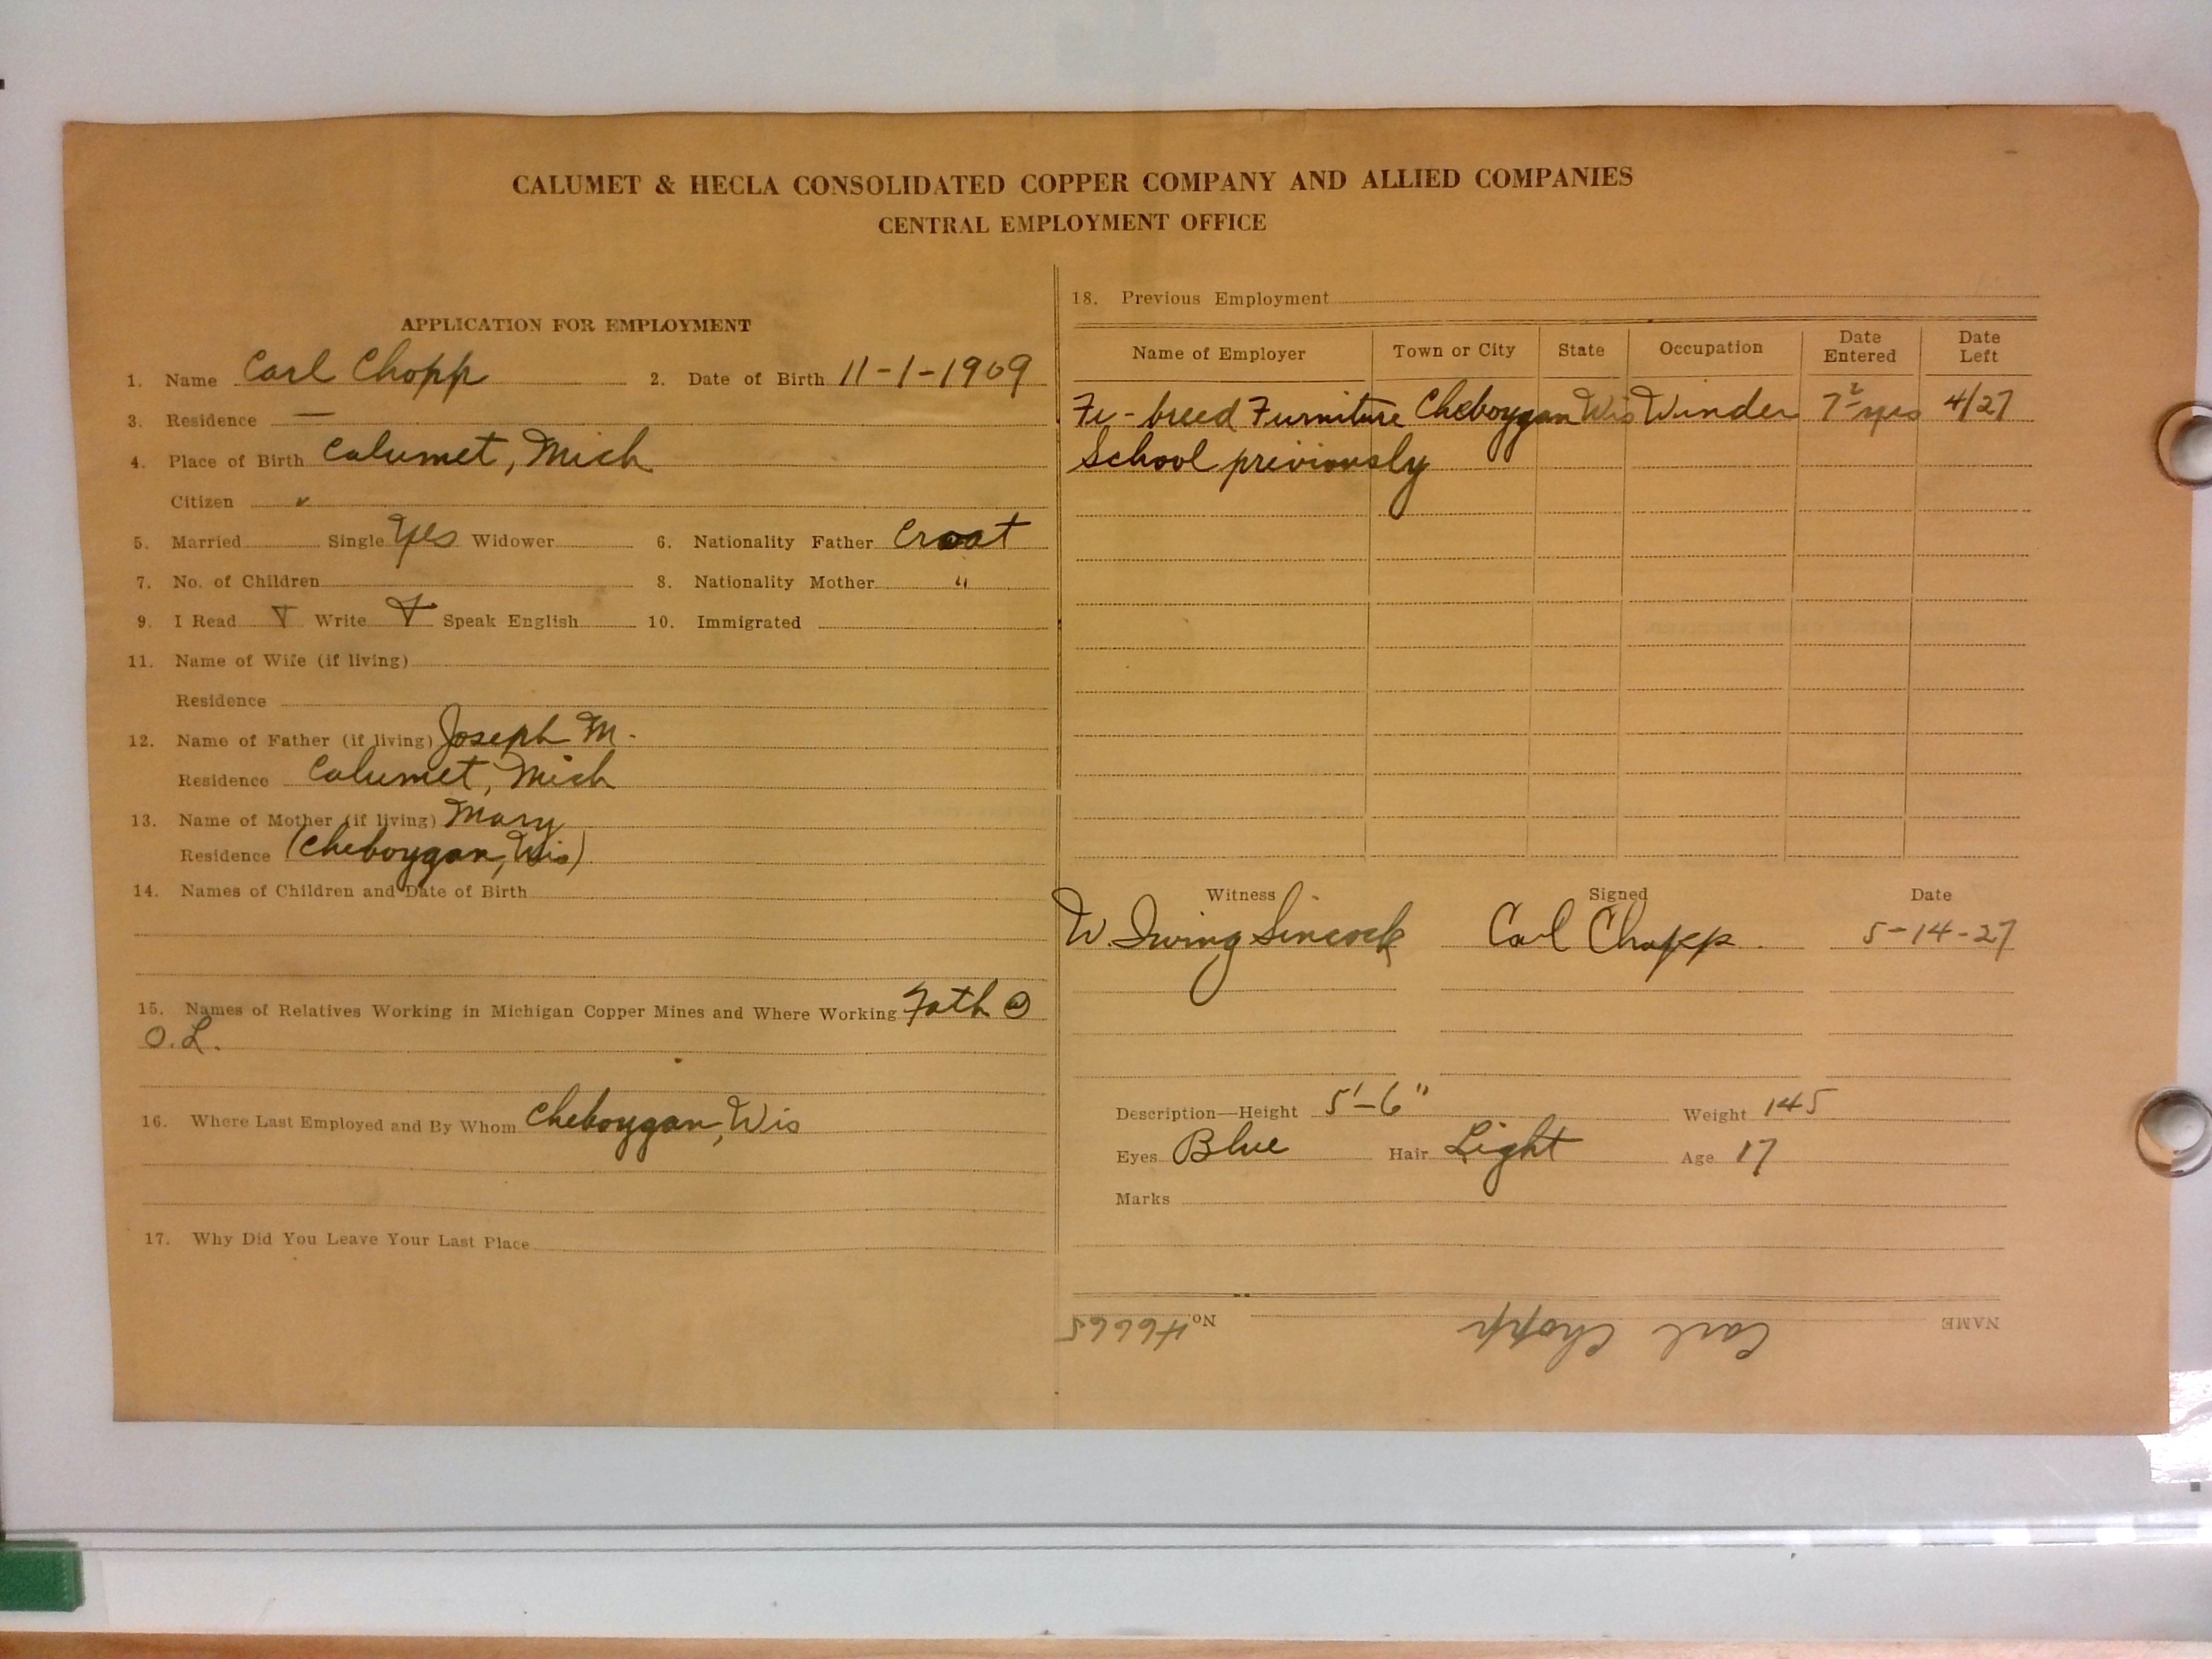 CALUMET & HECLA CONSOLIDATED COPPER COMPANY AND ALLIED COMPANIES
CENTRAL EMPLOYMENT OFFICE
APPLICATION FOR EMPLOYMENT
1. Name Carl Chopp 2. Date of Birth 11-1-1909
3. Residence —
4. Place of Birth Calumet, Mich
Citizen ✓
5. Married Single Yes Widower 6. Nationality Father Croat
7. No. of Children 8. Nationality Mother "
9. I Read Write Speak English 10. Immigrated
11. Name of Wife (if living)
Residence
12. Name of Father (if living) Joseph M.
Residence Calumet, Mich
13. Name of Mother (if living) Mary
Residence (Cheboygan, Wis)
14. Names of Children and Date of Birth
15. Names of Relatives Working in Michigan Copper Mines and Where Working Fath @
O.L.
16. Where Last Employed and By Whom Cheboygan, Wis
17. Why Did You Leave Your Last Place
18. Previous Employment
Name of Employer Town or City State Occupation Date Entered Date Left
Furniture Cheboygan Wis Winder 4/27
School previously
Witness Signed Date
W Irving Sincock Carl Chopp 5-14-27
Description—Height 5'-6" Weight 145
Eyes Blue Hair Light Age 17
Marks
NAME Carl Chopp No. 46665